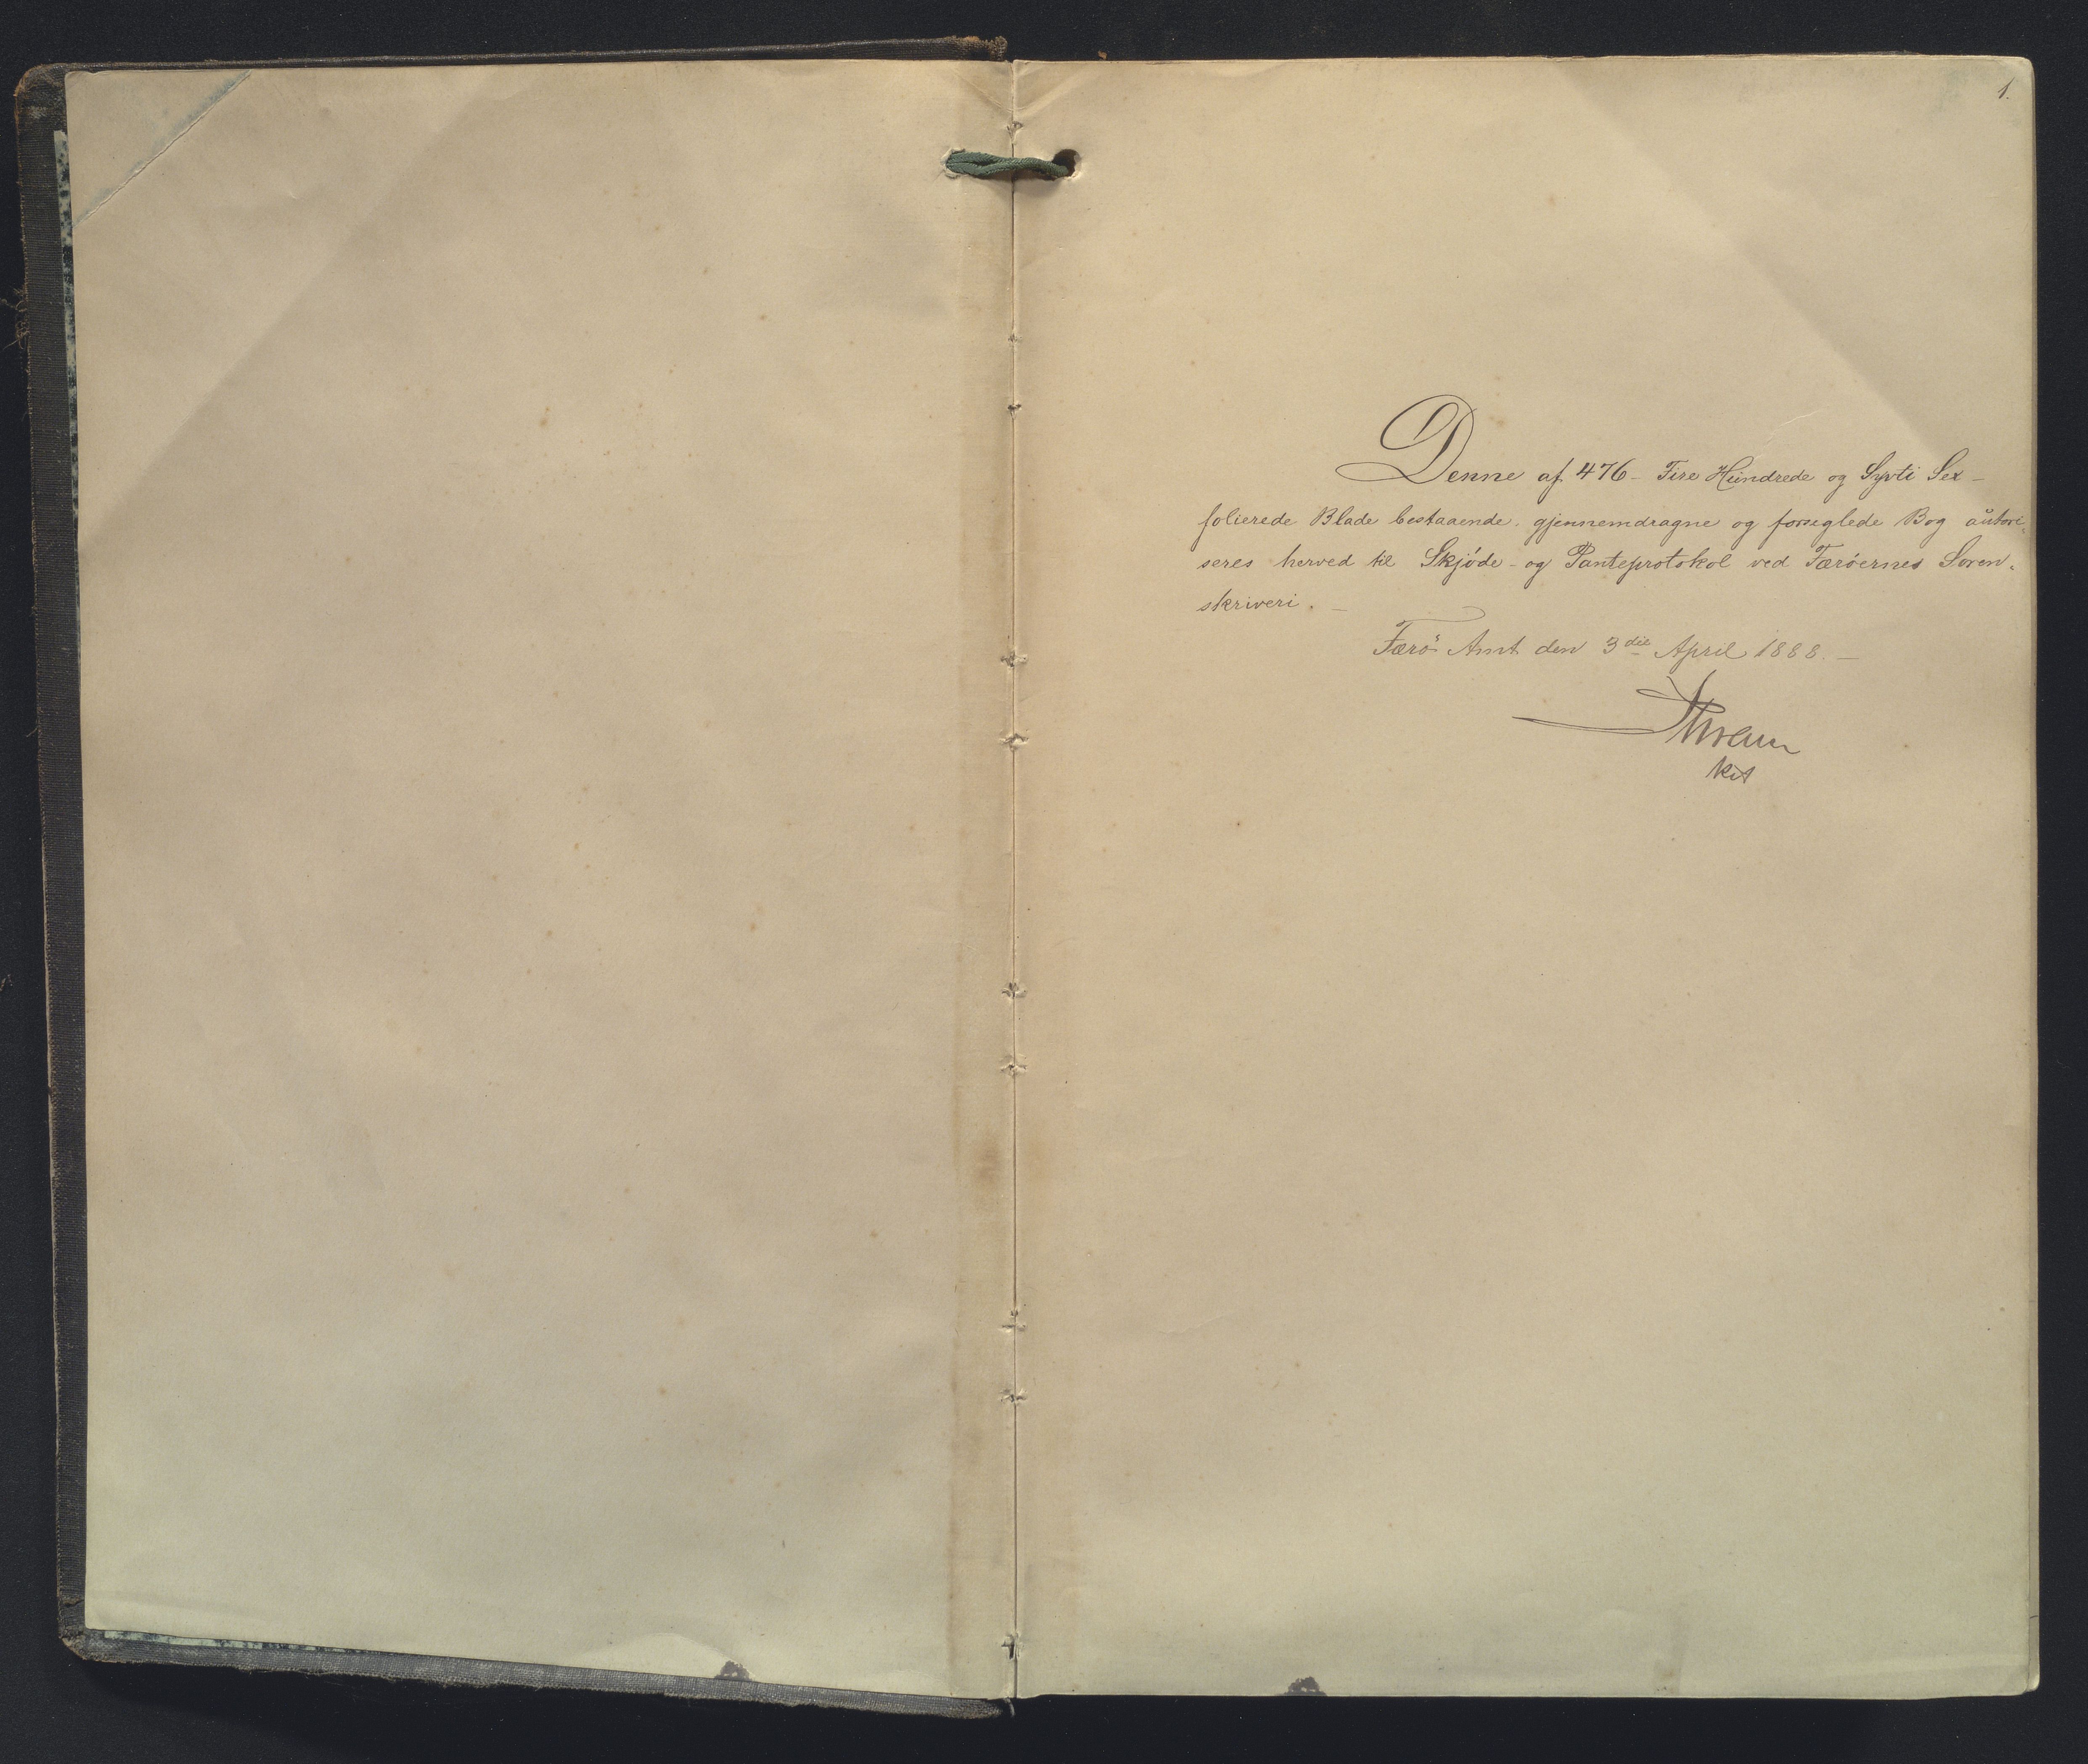 1.
Denne af 476 - Fire Hundrede og Syvti Sex -
folierede Blade bestaaende, gjennemdragne og forseglede Bog autori-
seres herved til Skjøde - og Panteprotokol ved Færøernes Soren-
skriveri. -
Færø Amt den 3die April 1888. -